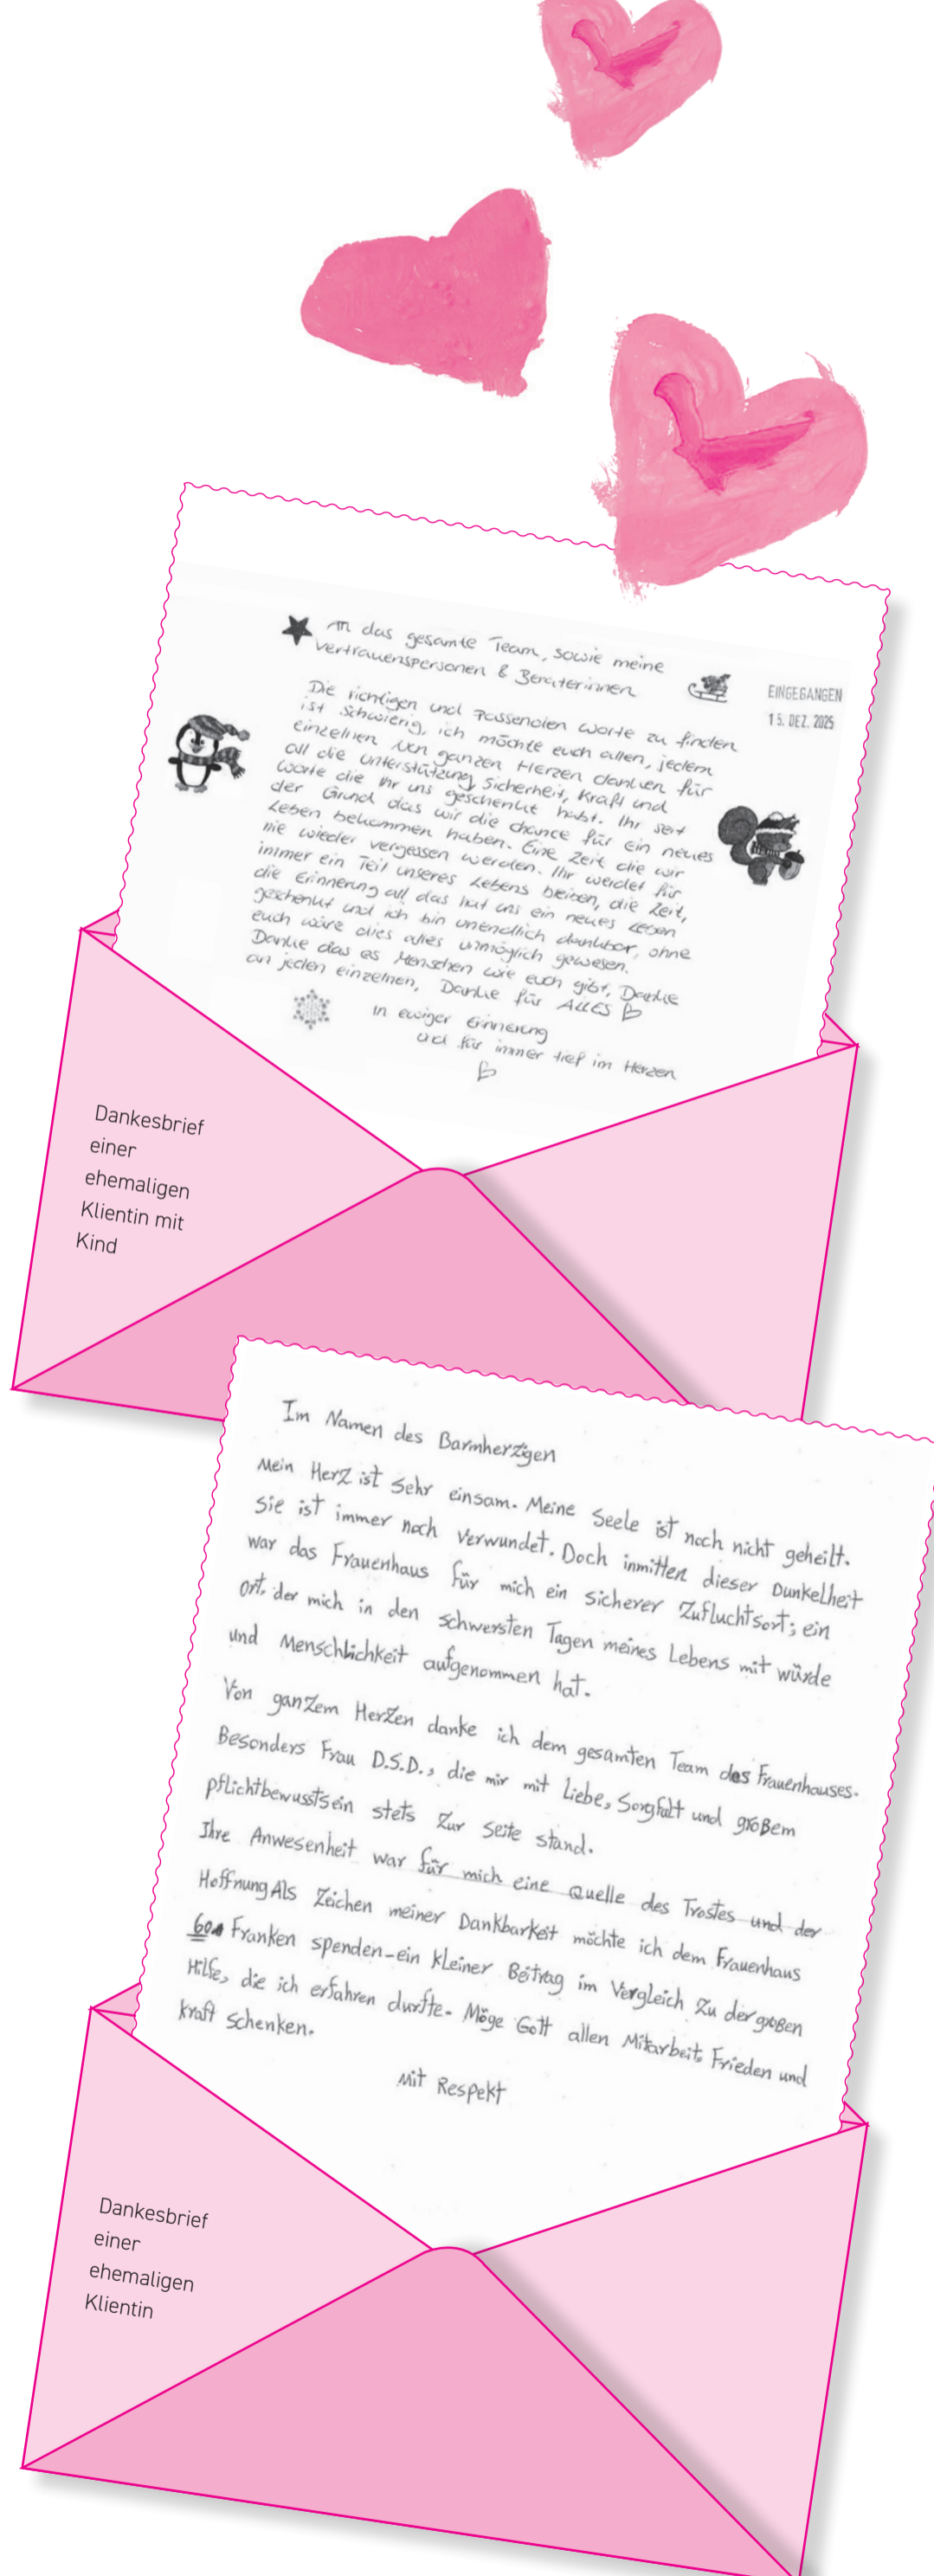 An das gesamte Team, sowie meine
Vertrauenspersonen & Beraterinnen
EINGEGANGEN
15. DEZ. 2025
Die richtigen und passenden Worte zu finden
ist schwierig, ich möchte euch allen, jedem
einzelnen von ganzen Herzen danken für
all die Unterstützung, Sicherheit, Kraft und
Worte die Ihr uns geschenkt habt. Ihr seit
der Grund das wir die Chance für ein neues
Leben bekommen haben. Eine Zeit die wir
nie wieder vergessen werden. Ihr werdet für
immer ein Teil unseres Lebens beiben, die Zeit,
die Erinnerung all das hat uns ein neues Leben
geschenkt und ich bin unendlich dankbar, ohne
euch wäre dies alles unmöglich gewesen.
Danke das es Menschen wie euch gibt, Danke
an jeden einzelnen, Danke für ALLES
in ewiger Erinnerung
und für immer tief im Herzen
Dankesbrief
einer
ehemaligen
Klientin mit
Kind
Im Namen des Barmherzigen
Mein Herz ist sehr einsam. Meine Seele ist noch nicht geheilt.
Sie ist immer noch verwundet. Doch inmitten dieser Dunkelheit
war das Frauenhaus für mich ein sicherer Zufluchtsort; ein
Ort, der mich in den schwersten Tagen meines Lebens mit würde
und Menschlichkeit aufgenommen hat.
Von ganzem Herzen danke ich dem gesamten Team des Frauenhauses.
Besonders Frau D.S.D., die mir mit Liebe, Sorgfalt und großem
pflichtbewusstsein stets zur Seite stand.
Ihre Anwesenheit war für mich eine Quelle des Trostes und der
Hoffnung Als Zeichen meiner Dankbarkeit möchte ich dem Frauenhaus
60 Franken spenden-ein kleiner Beitrag im Vergleich zu der großen
Hilfe, die ich erfahren durfte. Möge Gott allen Mitarbeit. Frieden und
kraft schenken.
Mit Respekt
Dankesbrief
einer
ehemaligen
Klientin